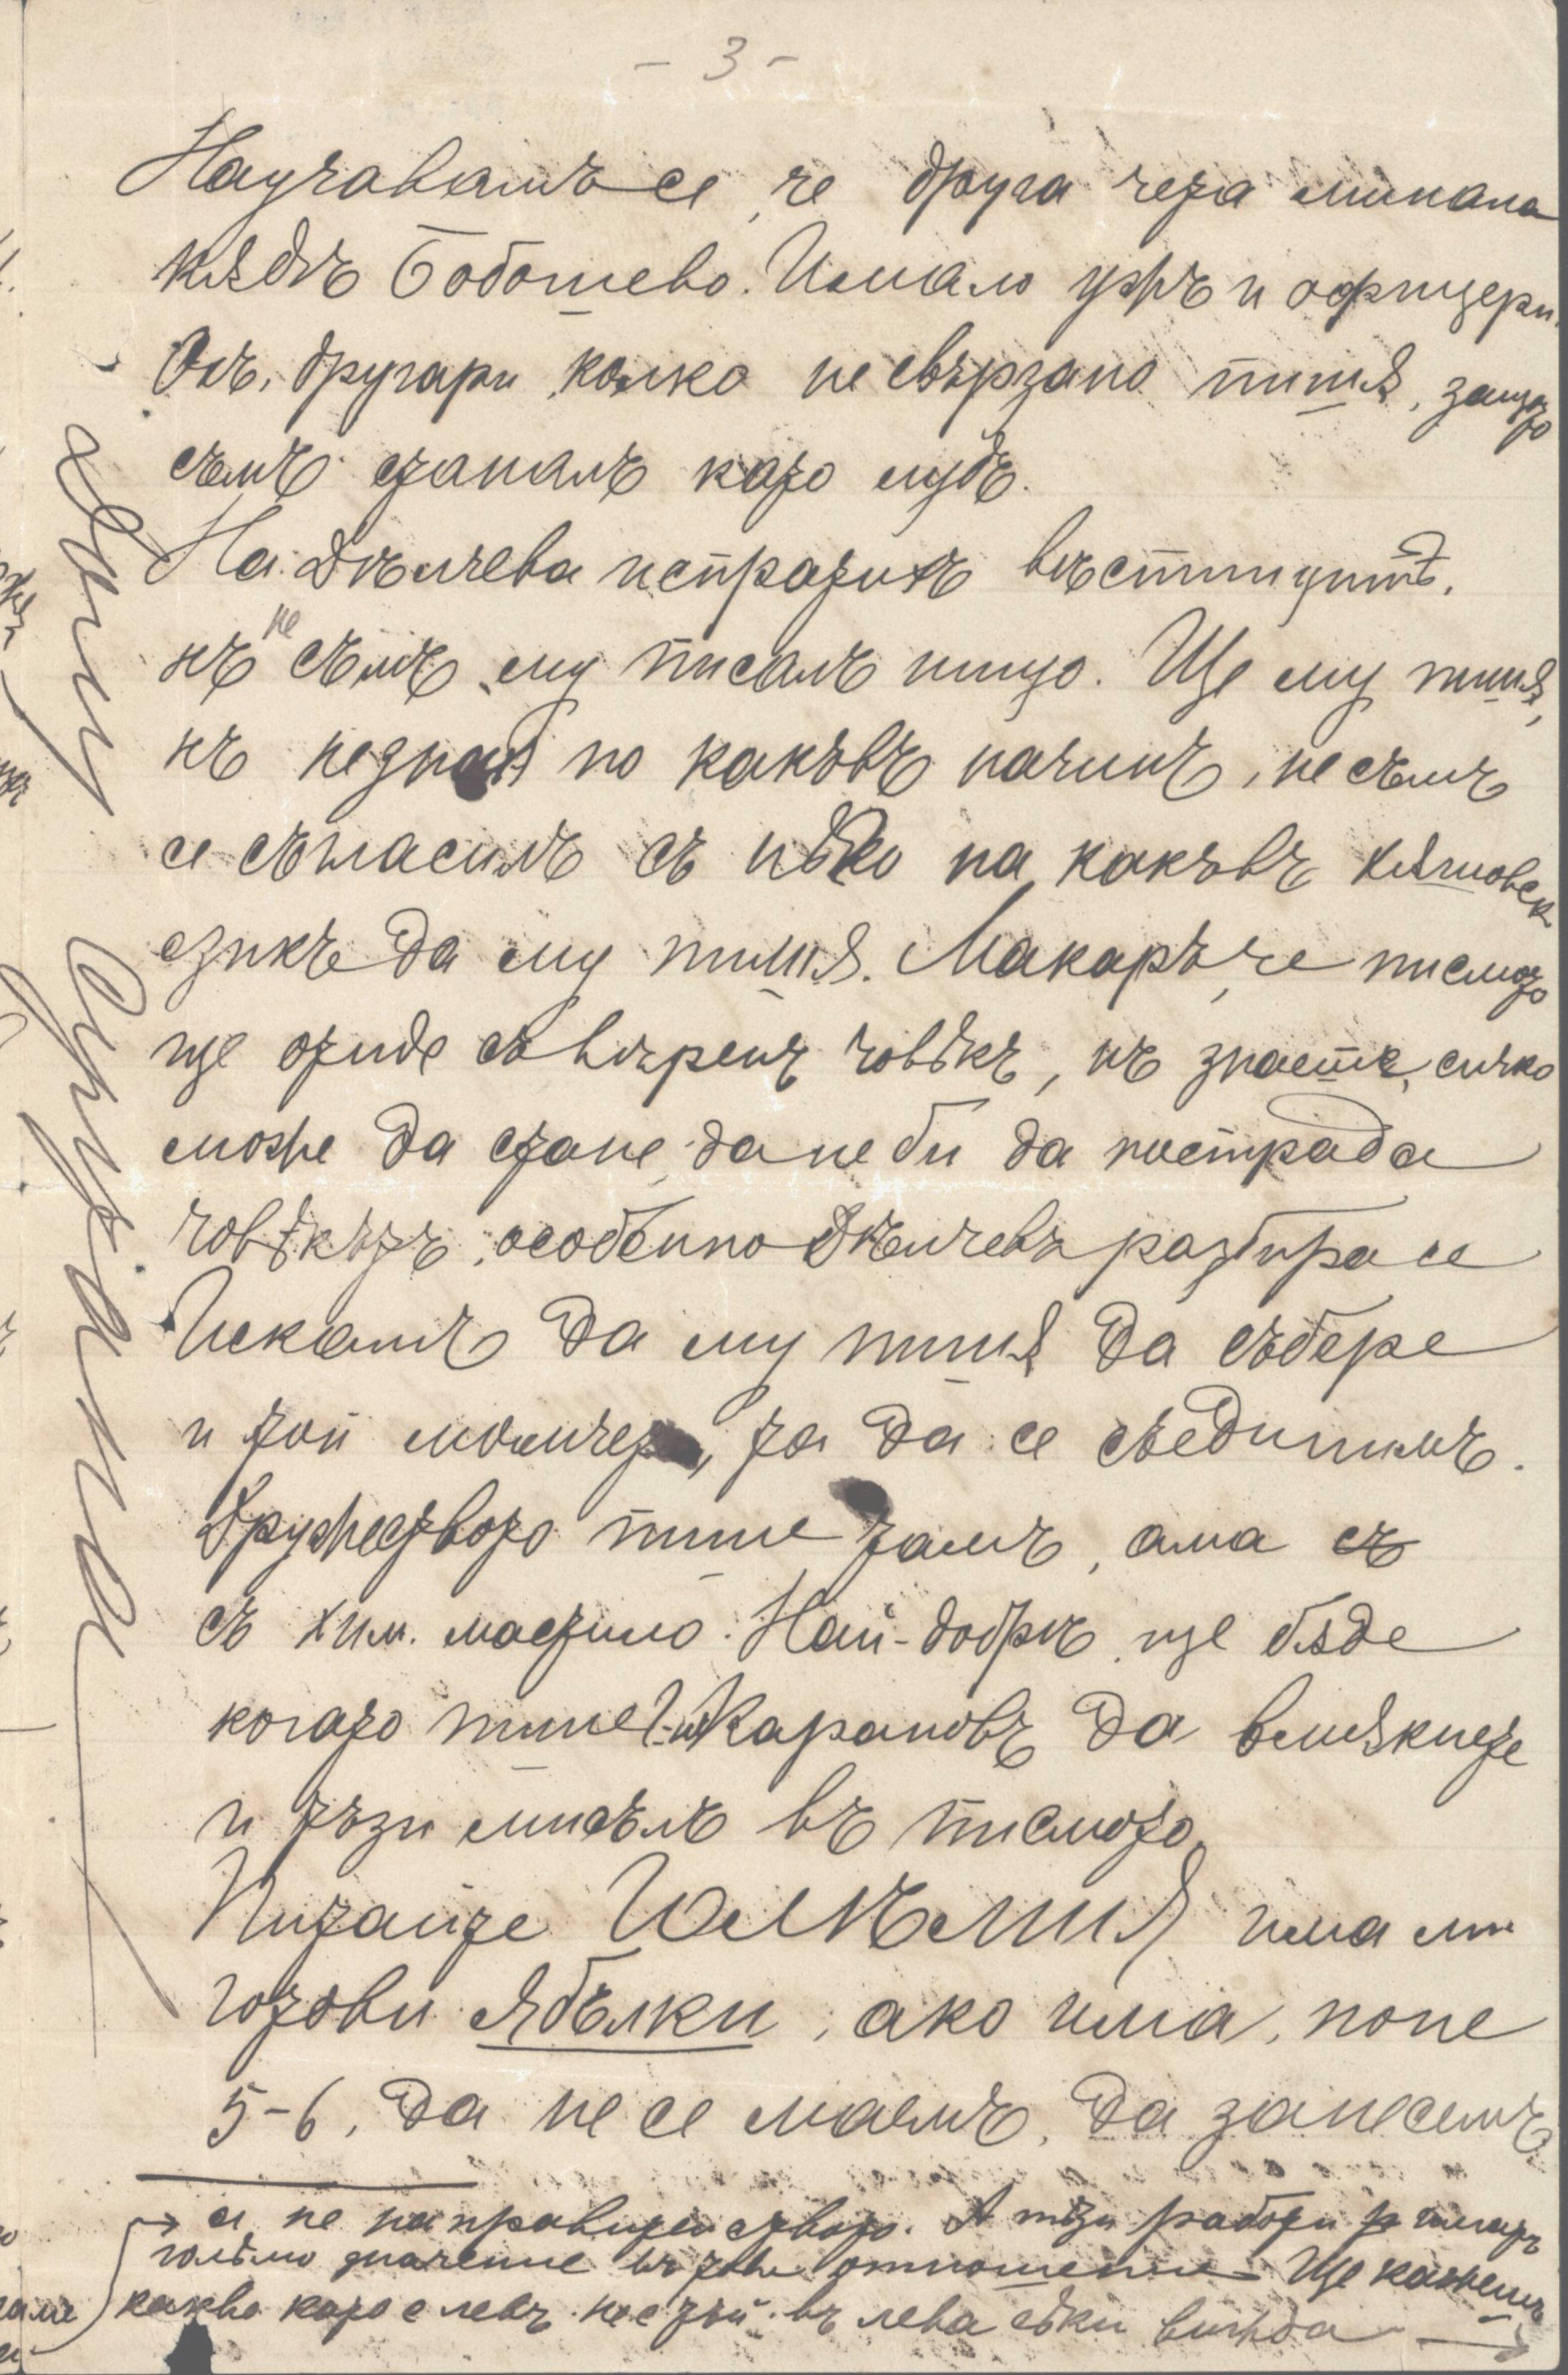 - 3 -
Научавамъ се, че друга чета минала
кѫдѣ Бобошево. Имало ужъ и офицери.
Охъ, другари, колко не свързано пишѫ, защото
съмъ станалъ като лудъ.
На Дѣлчева испратихъ вѣстницитѣ,
нъ не съмъ му писалъ нищо. Ще му пишѫ,
нъ незнаѭ по какъвъ начинъ, не съмъ
се съгласилъ съ него на какъвъ
езикъ да му пишѫ. Макаръ, че писмото
ще отиде съ вѣренъ човѣкъ, нъ знаете, сичко
може да стане, да не би да пострада
човѣкътъ, особенно Дѣлчевъ разбира се
Искамъ да му пишѫ да събере
и той момчета, та да се съединимъ.
Дружеството пише тамъ, ама съ
съ хим. мастило. Най-добрѣ ще бѫде
когато пише Г-нъ Карановъ да вмѫкнете
и тѣзи мисъль въ писмото.
Питайте има ли
готови ябълки, ако има, поне
5-6, да не се маемъ, да занесемъ
си не направи
голѣмо значение въ това отношение. Ще кажешъ
какво като е левъ не е той въ лева сѣки вижда
Дими
Сушкания